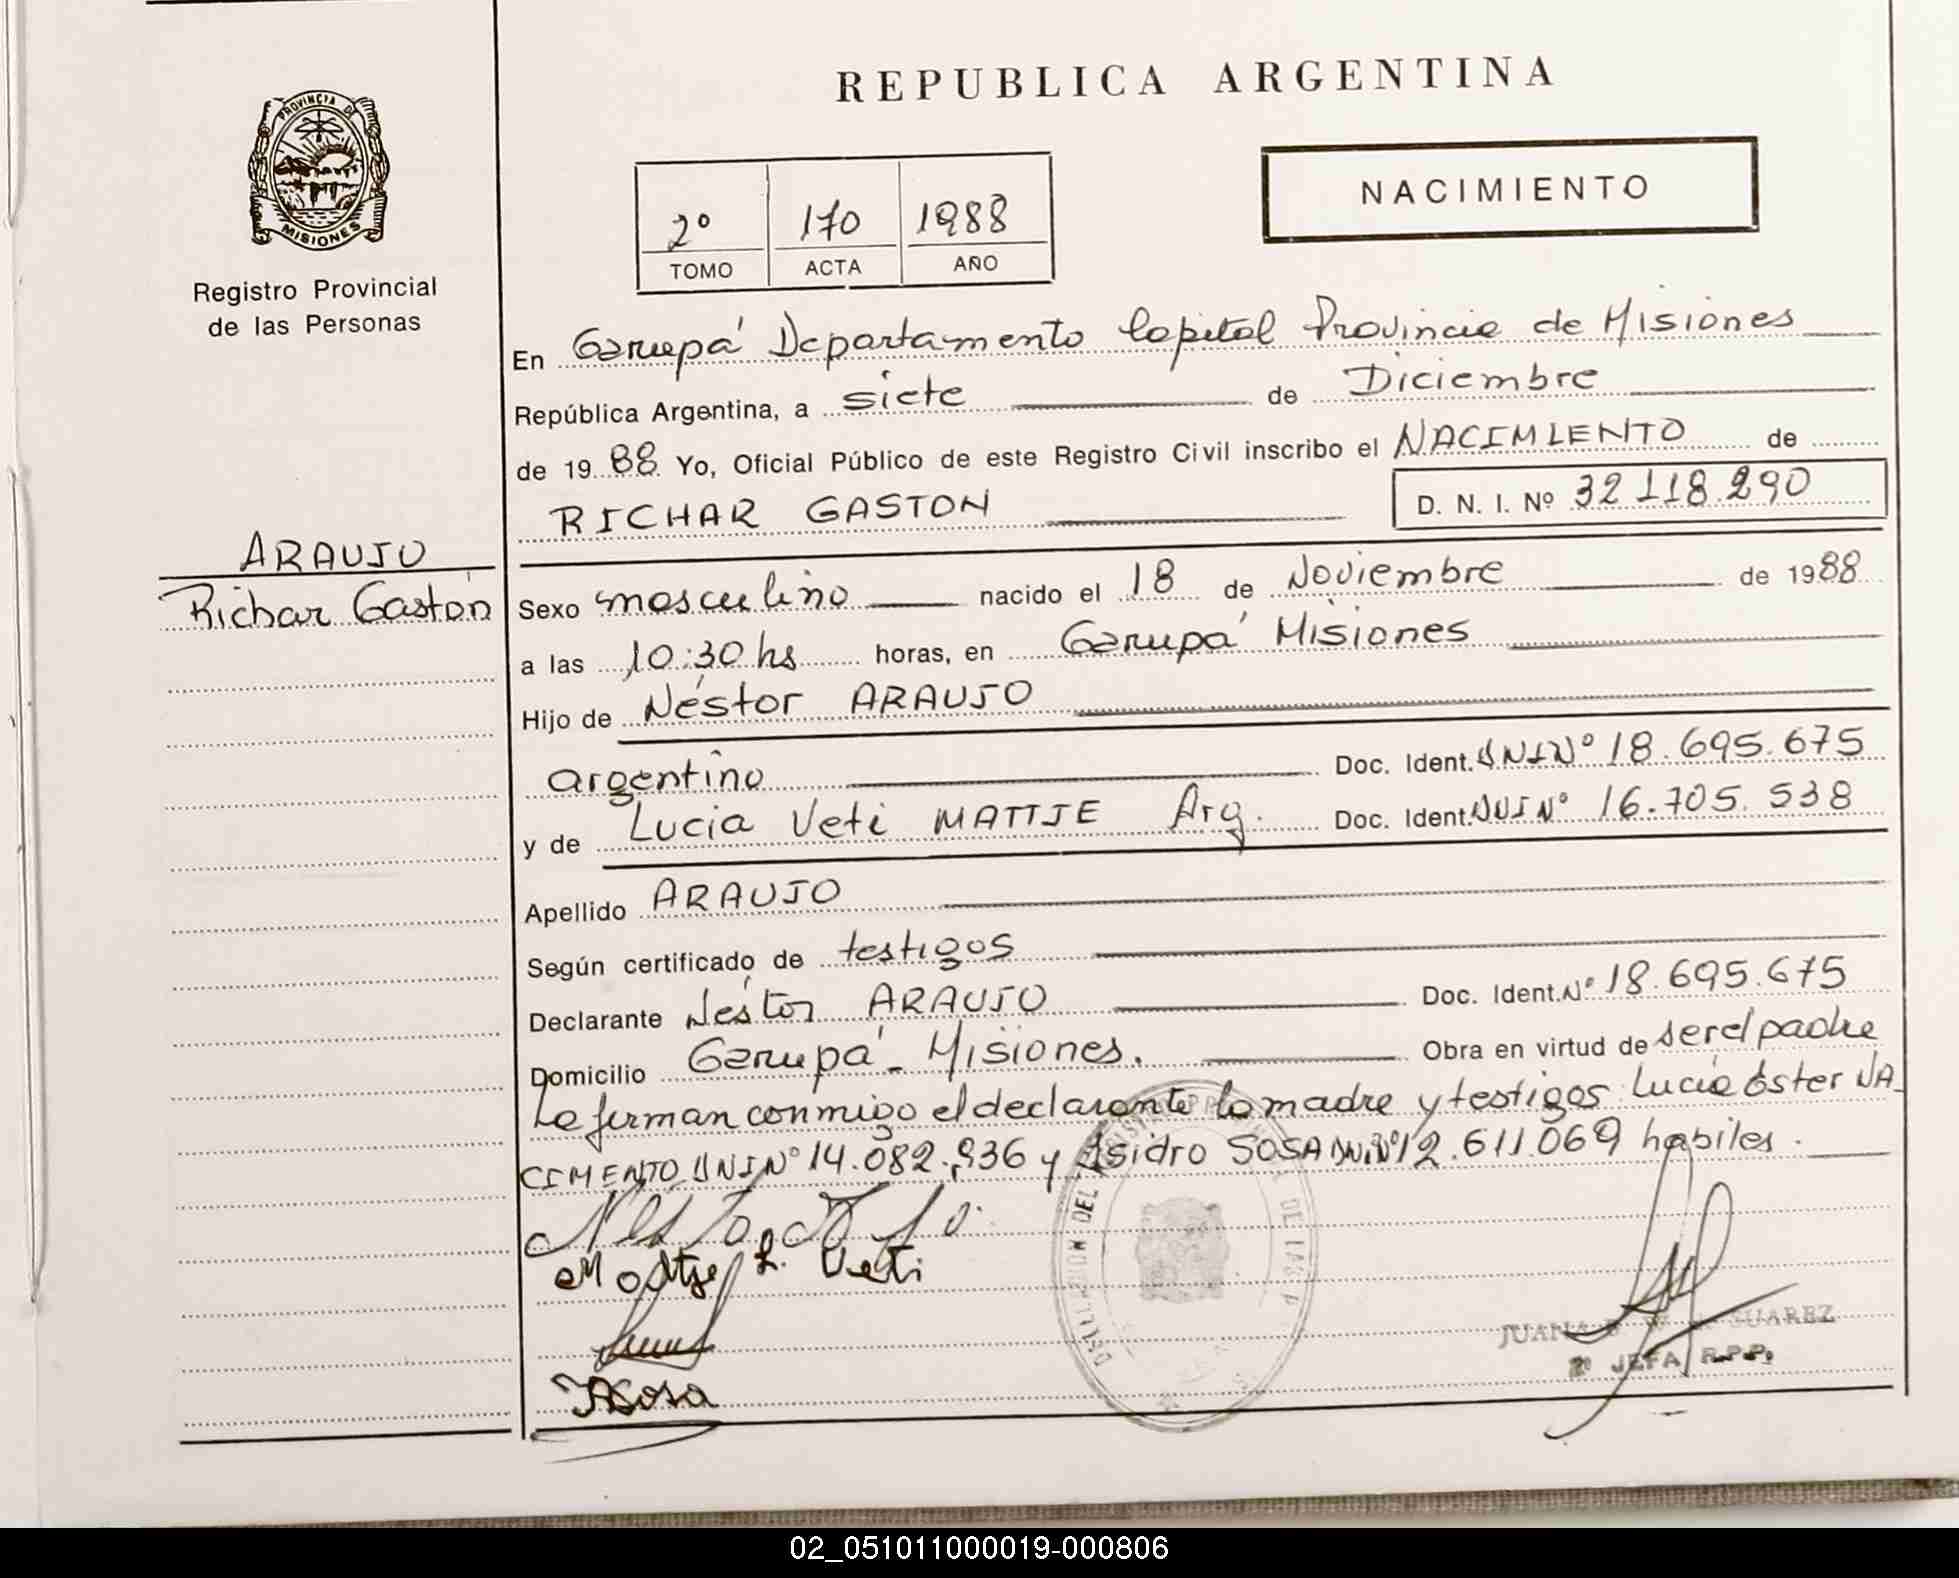 REPUBLICA ARGENTINA
PROVINCIA DE
MISIONES
Registro Provincial
de las Personas
2º 170 1988
TOMO ACTA AÑO
NACIMIENTO
En Garupá Departamento Capital Provincia de Misiones
República Argentina, a siete de Diciembre
de 1988 Yo, Oficial Público de este Registro Civil inscribo el NACIMIENTO de
RICHAR GASTON D. N. I. Nº 32 118.290
ARAUJO
Richar Gastón
Sexo masculino nacido el 18 de Noviembre de 1988
a las 10:30 hs horas, en Garupá Misiones
Hijo de Néstor ARAUJO
argentino Doc. Ident. DNI Nº 18.695.675
y de Lucia Veti MATTJE Arg. Doc. Ident. DNI Nº 16.705.538
Apellido ARAUJO
Según certificado de testigos
Declarante Néstor ARAUJO Doc. Ident. Nº 18.695.675
Domicilio Garupá - Misiones. Obra en virtud de ser el padre
La firman conmigo el declarante la madre y testigos Lucia Ester NA-
CIMENTO DNI Nº 14.082.936 y Isidro SOSA DNI Nº 12.611.069 habiles.
L. Veti
Sosa
JUANA SUAREZ
2º JEFA R.P.P.
02_051011000019-000806